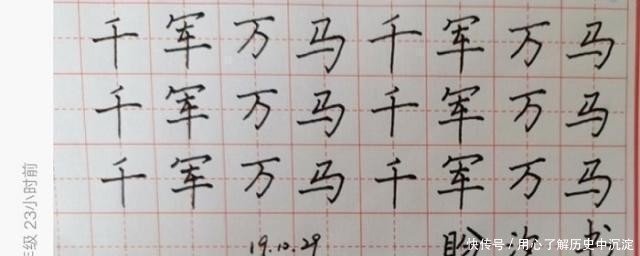 千军万马千军万马
千军万马千军万马
千军万马千军万马
19.10.29
书
级 23小时前
快传号/用心了解历史中沉淀